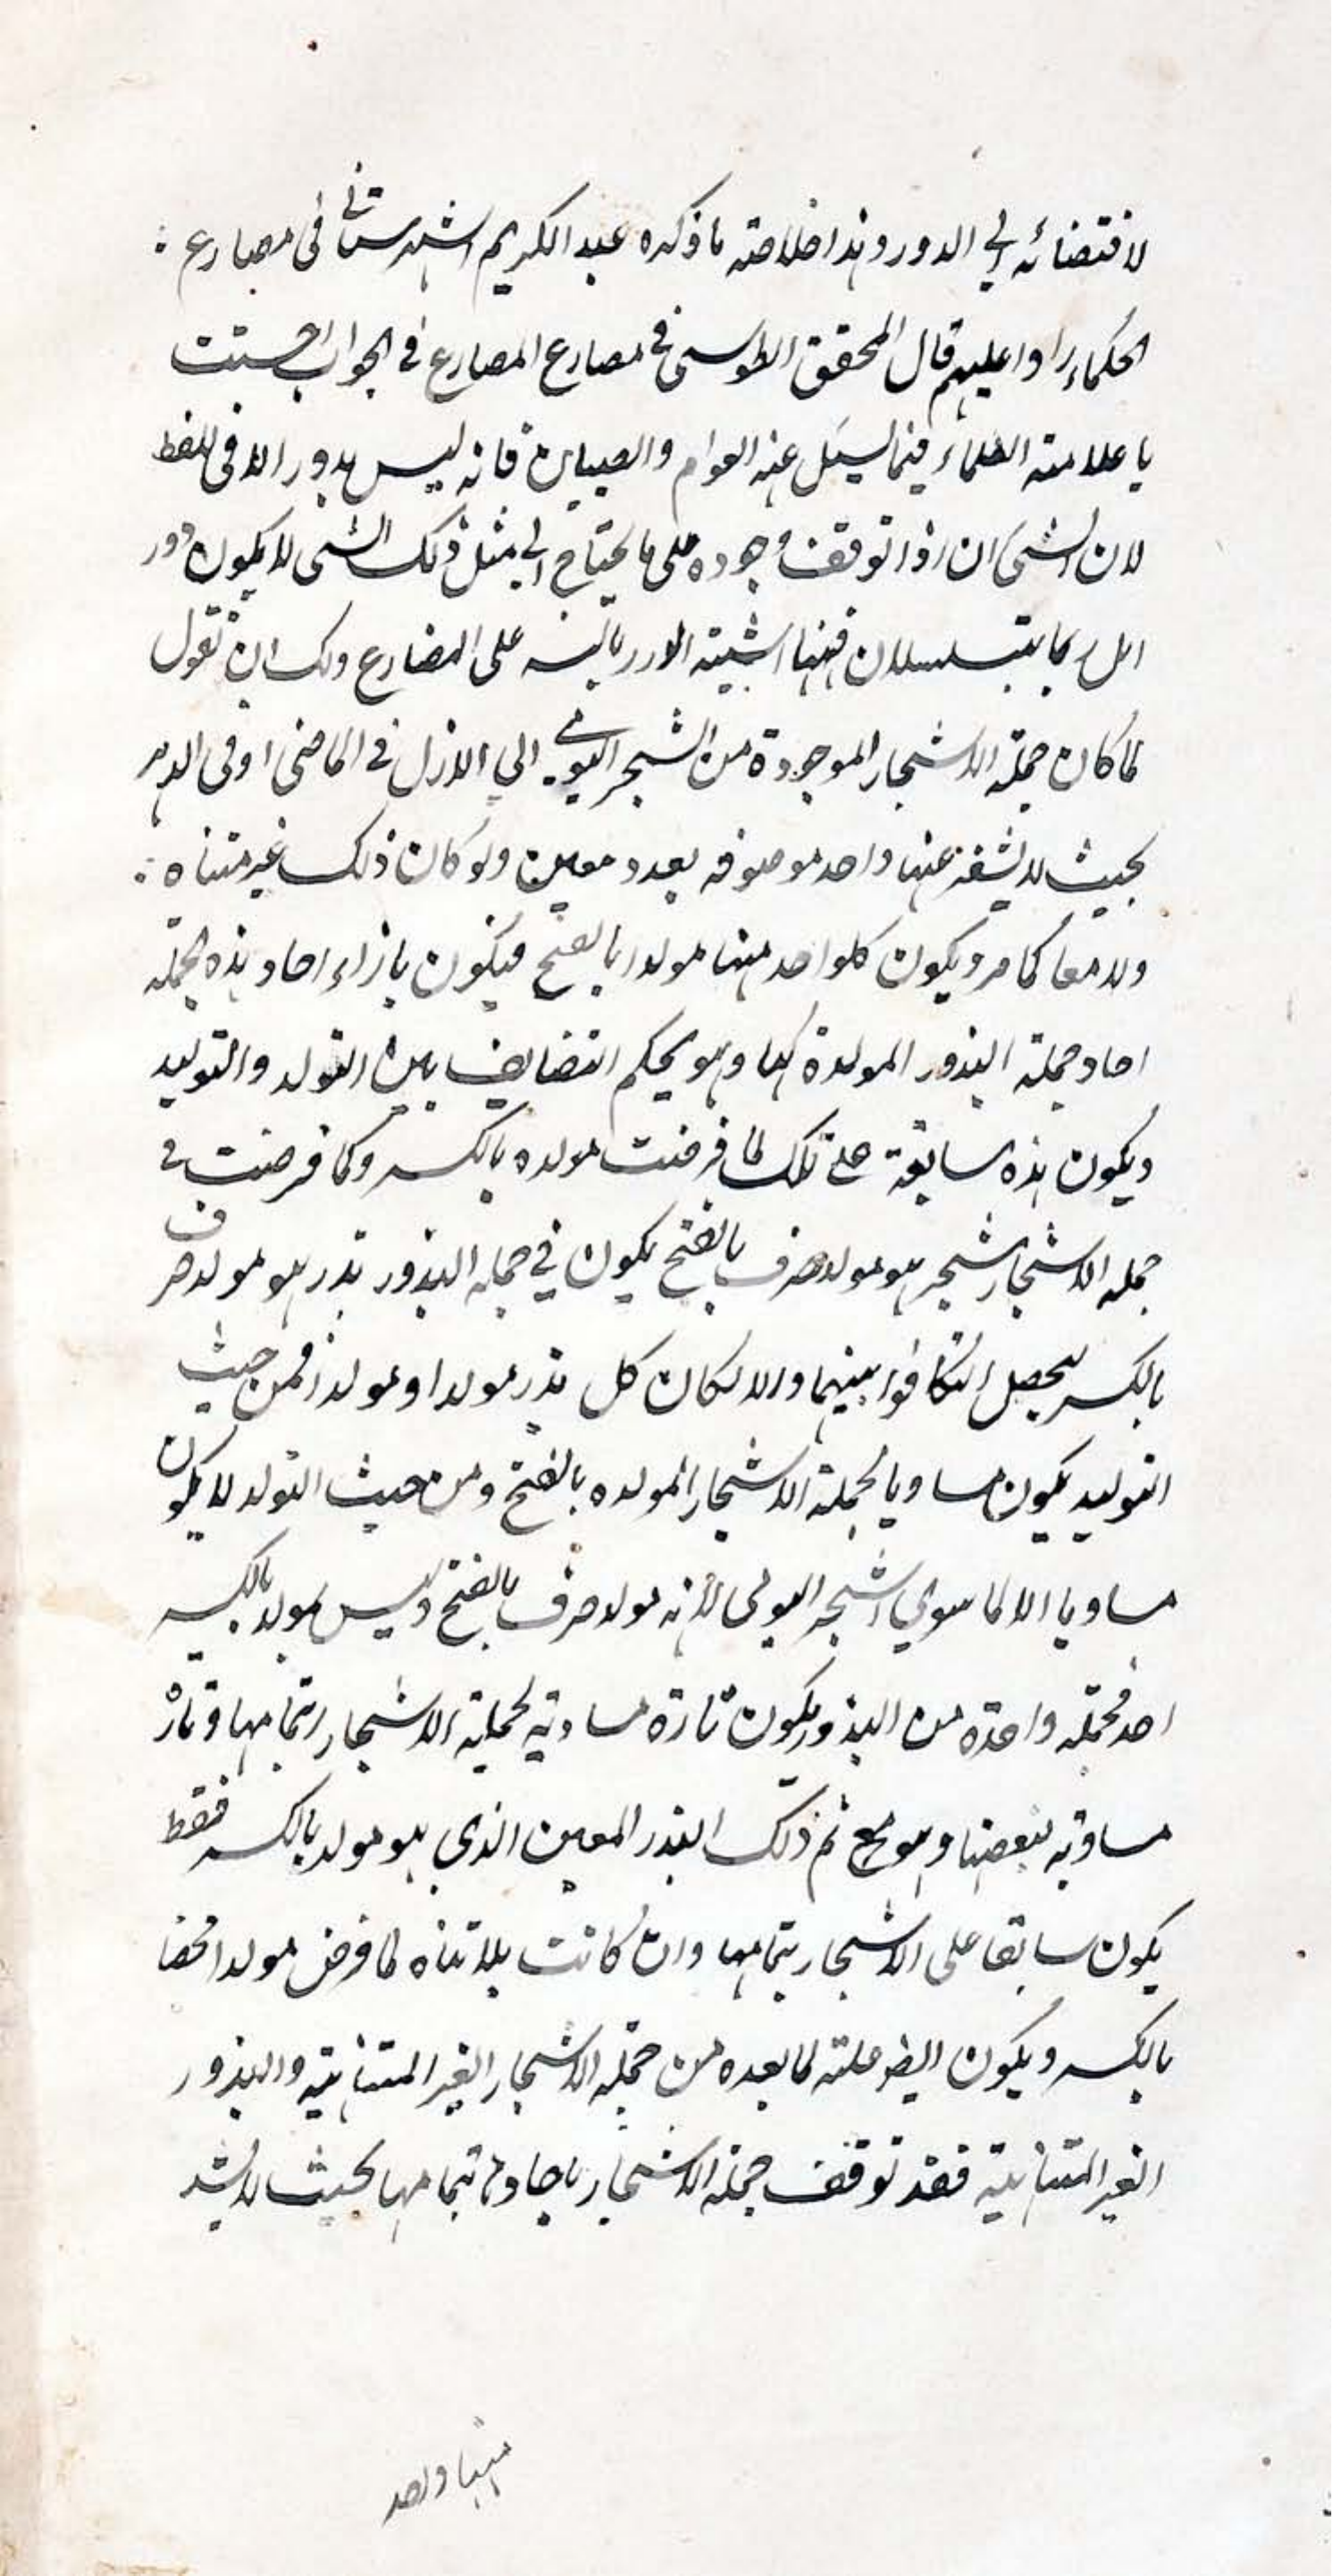 لاقتضائه الي الدور وهذا خلاصة ما ذكره عبد الكريم الشهرستاني في مصارع :
الحكماء رادا عليهم قال المحقق الطوسي في مصارع المصارع في الجواب احسنت
يا علامة العلماء فيما يسئل عنه العوام والصبيان فانه ليس بدور الا في اللفظ
لان الشئ ان اذا توقف وجوده على ما يحتاج الي مثل ذلك الشئ لا يكون دور
بل ربما يتسلسلان فههنا اشبيته على المضارع ولك ان تقول
لما كان جملة الاشجار الموجودة من الشجر اليومي الي الازل في الماضي او في الدهر
بحيث لا يشذ عنها واحد موصوفه بعدد معين ولو كان ذلك غير متناه :
ولا معا كما مر ويكون كلواحد منها مولدا بالفتح فيكون بازاء احاد هذه الجملة
احاد جملة البذور المولدة لها وهو بحكم التضايف بين التولد والتوليد
ويكون هذه سابقة على تلك لما فرضت مولده بالكسر وكما فرضت في
جملة الاشجار شجر هو مولد صرف بالفتح يكون في جملة البذور بذر هو مولد صرف
بالكسر ليحصل التكافؤا بينهما والا لكان كل بذر مولدا ومولدا فمن حيث
التوليد يكون مساويا لجملة الاشجار المولده بالفتح ومن حيث التولد لا يكون
مساويا الا لما سوي الشجر اليومي لأنه مولد صرف بالفتح وليس مولد بالكسر
احد فجملة واحدة من البذور يكون تارة مساوية لجملة الاشجار بتمامها وتارة
مساوية لبعضها وهو مح ثم ذلك البذر المعين الذي هو مولد بالكسر فقط
يكون سابقا على الاشجار بتمامها وان كانت بلا تناه لما فرض مولدا محضا
بالكسر ويكون ايضا علة لما بعده من جملة الاشجار الغير المتناهية والبذور
الغير المتناهية فقد توقف جملة الاشجار باحادها بتمامها بحيث لا يشذ
منها واحد